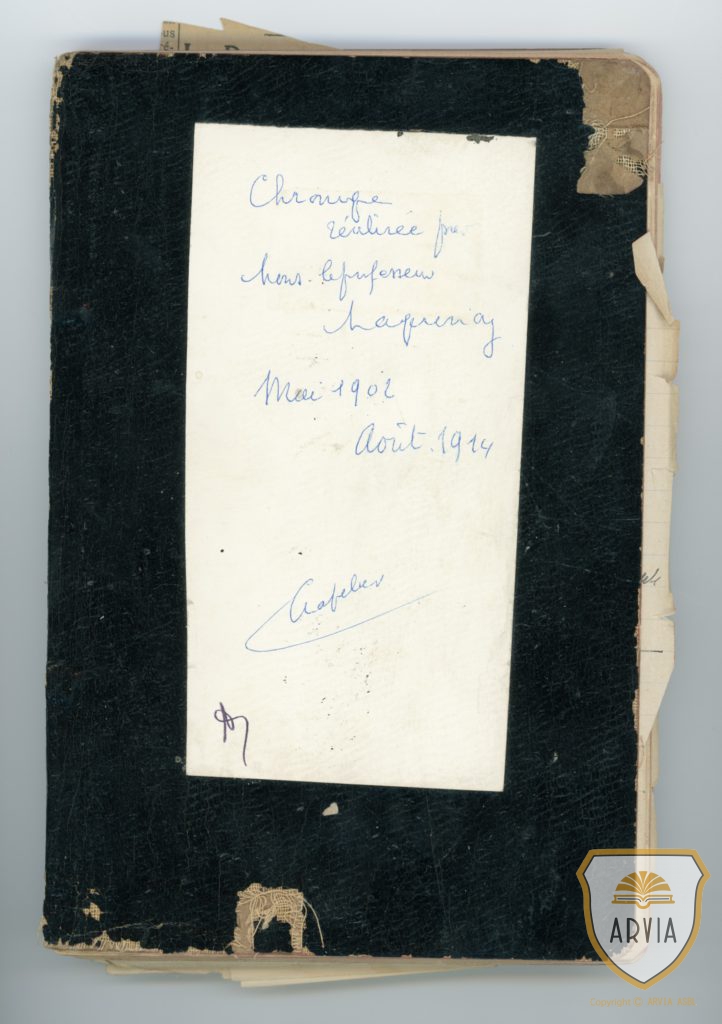 us
Chronique
réalisée par
Mons. le professeur
Mai 1902
Août. 1914
ARVIA
Copyright © ARVIA